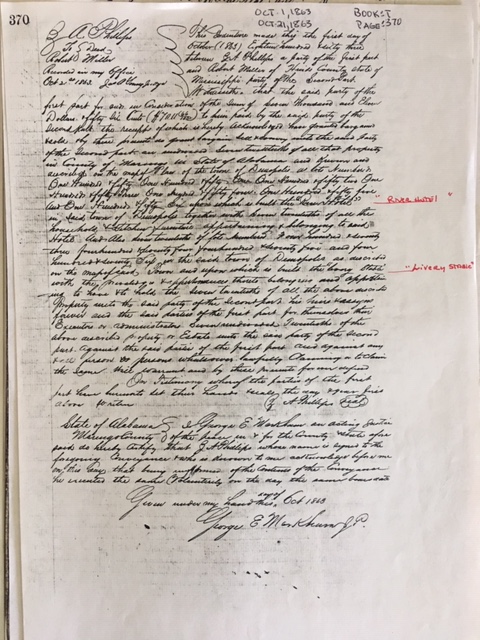 370
OCT-1, 1863
OCT-21, 1863
BOOK: T
PAGE: 370
Z. A. Phillips
To } Deed
Robert Miller
Received in my Office
Oct 21st 1863.
This Indenture made this the first day of
October (1863) Eighteen hundred sixty three
between Z. A. Phillips a party of the first part
and Robert Miller of Hinds County state of
Mississippi party of the Second part
Witnesseth. That the said party of the
first part for and in Consideration of the Sum of Seven Thousand and Eleven
Dollars & fifty Six Cents to him paid by the said party of the
Second part the receipt of which is hereby acknowledged have granted bargained
sold & by these presents do grant bargain sell & convey unto the said Party
of the Second part an undivided Seven twentieths of all that property
in County of Marengo in State of Alabama and known and
according on the map & Plan of the town of Demopolis as lots Numbers
One Hundred & fifty One Hundred & fifty One One Hundred & fifty two One
Hundred & fifty three One hundred & fifty four, One Hundred & fifty five
and One Hundred & fifty Six upon which is built the "River Hotel"
in said town of Demopolis together with Seven twentieths of all the
household & Kitchen furniture appurtenancy & belonging to said
Hotel and also Seven twentieths of lots four hundred & seventy
three four hundred & seventy four four hundred & seventy five and four
hundred & seventy Six in the said town of Demopolis as described
on the map of said Town and upon which is built the Livery Stable
with the privileges & appurtenances thereto belonging and appertain
ing to have & to hold the Seven twentieths of all the above described
Property unto the said party of the second part his heirs & assigns
forever and the said parties of the first part for themselves their
Executors or administrators Seven undivided Twentieths of the
above described property or Estate unto the said party of the Second
part against the said parties of the first part and against any
person or persons whomsoever lawfully Claiming or to claim
the Same Will warrant and by these presents forever defend
In Testimony whereof the parties of the first
part have hereunto set their hands & seals the day & year first
above written
Z. A. Phillips Seal
"RIVER HOTEL"
"LIVERY STABLE"
State of Alabama } I George E Markham an acting Justice
Marengo County } of the peace in & for the County & State afore
said do hereby Certify that Z. A. Phillips whose name is signed to the
foregoing Conveyance & who is known to me acknowledged before me
on this day that being informed of the Contents of the Conveyance
he executed the same Voluntarily on the day the same bears date
Given under my hand this day of Oct 1863
George E Markham J.P.